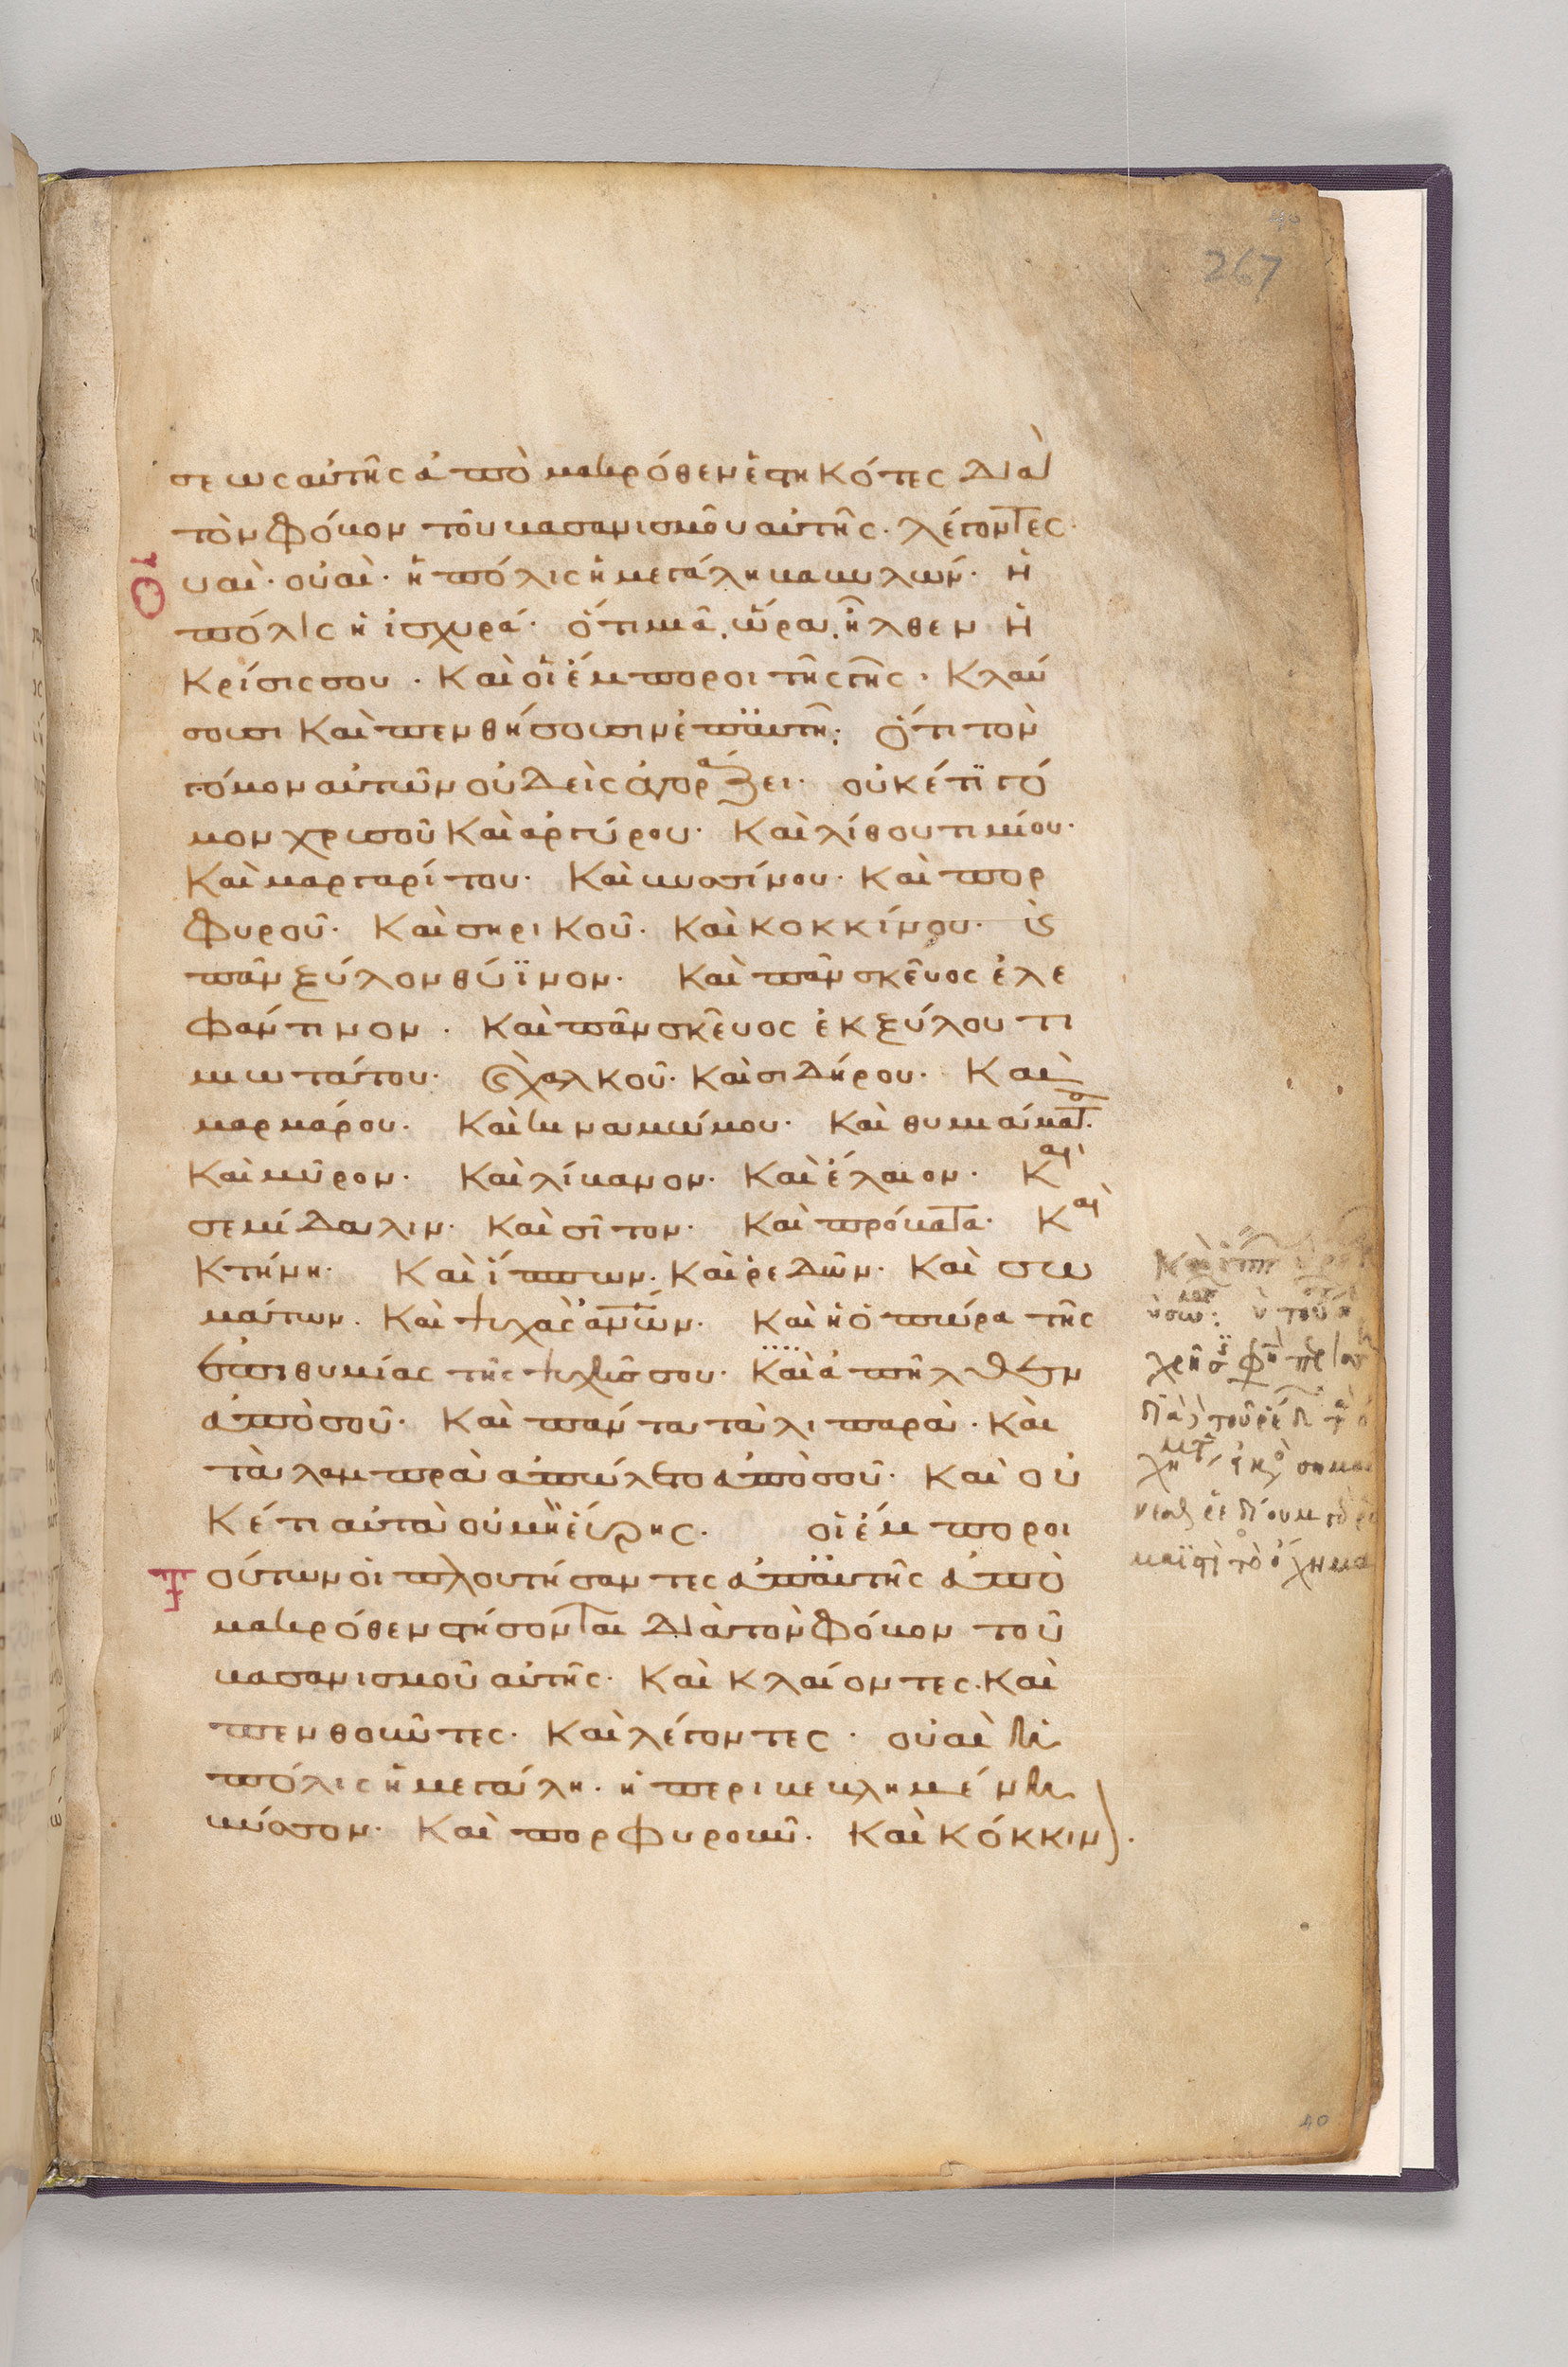 σεως αὐτῆς ἀπὸ μακρόθεν ἑστηκότες διὰ
τὸν φόβον τοῦ βασανισμοῦ αὐτῆς· λέγοντες·
Ουαὶ· οὐαὶ· ἡ πόλις ἡ μεγάλη βαβυλών· ἡ
πόλις ἡ ἰσχυρά· ὅτι μιᾶ ὥρα ἦλθεν ἡ
κρίσις σου· καὶ οἱ ἔμποροι τῆς γῆς· κλαύ
σουσι καὶ πενθήσουσιν ἐπ' αὐτῆ· ὅτι τὸν
γόμον αὐτῶν οὐδεὶς ἀγοράζει· οὐκέτϊ γό
μον χρυσοῦ καὶ ἀργύρου· καὶ λίθου τιμίου·
καὶ μαργαρίτου· καὶ βυσσίνου· καὶ πορ
φυροῦ· καὶ σηρικοῦ· καὶ κοκκίνου· καὶ
πᾶν ξύλον θύϊνον· καὶ πᾶν σκεῦος ἐλε
φάντινον· καὶ πᾶν σκεῦος ἐκ ξύλου τι
μιωτάτου· καὶ χαλκοῦ· καὶ σιδήρου· καὶ
μαρμάρου· καὶ κιναμώμου· καὶ θυμιάματος·
καὶ μῦρον· καὶ λίβανον· καὶ ἔλαιον· καὶ
σεμίδαλιν· καὶ σῖτον· καὶ πρόβατα· καὶ
κτήνη· καὶ ἵππων· καὶ ῥεδῶν· καὶ σω
μάτων· καὶ ψυχὰς ἀνων· καὶ ἡ ὀπώρα τῆς
ἐπιθυμίας τῆς ψυχῆς σου· καὶ ἀπῆλθεν
ἀπὸ σοῦ· καὶ πάντα τὰ λιπαρὰ· καὶ
τὰ λαμπρὰ ἀπώλετο ἀπὸ σοῦ· καὶ οὐ
κέτι αὐτὰ οὐ μὴ εὕρης· οἱ ἔμποροι
τούτων οἱ πλουτήσαντες ἀπ' αὐτῆς ἀπὸ
μακρόθεν στήσονται διὰ τὸν φόβον τοῦ
βασανισμοῦ αὐτῆς· καὶ κλαίοντες· καὶ
πενθοῦντες· καὶ λέγοντες· οὐαὶ ἡ
πόλις ἡ μεγάλη· ἡ περιβεβλημένη
βύσσον· καὶ πορφυροῦν· καὶ κόκκιν)·
267
40